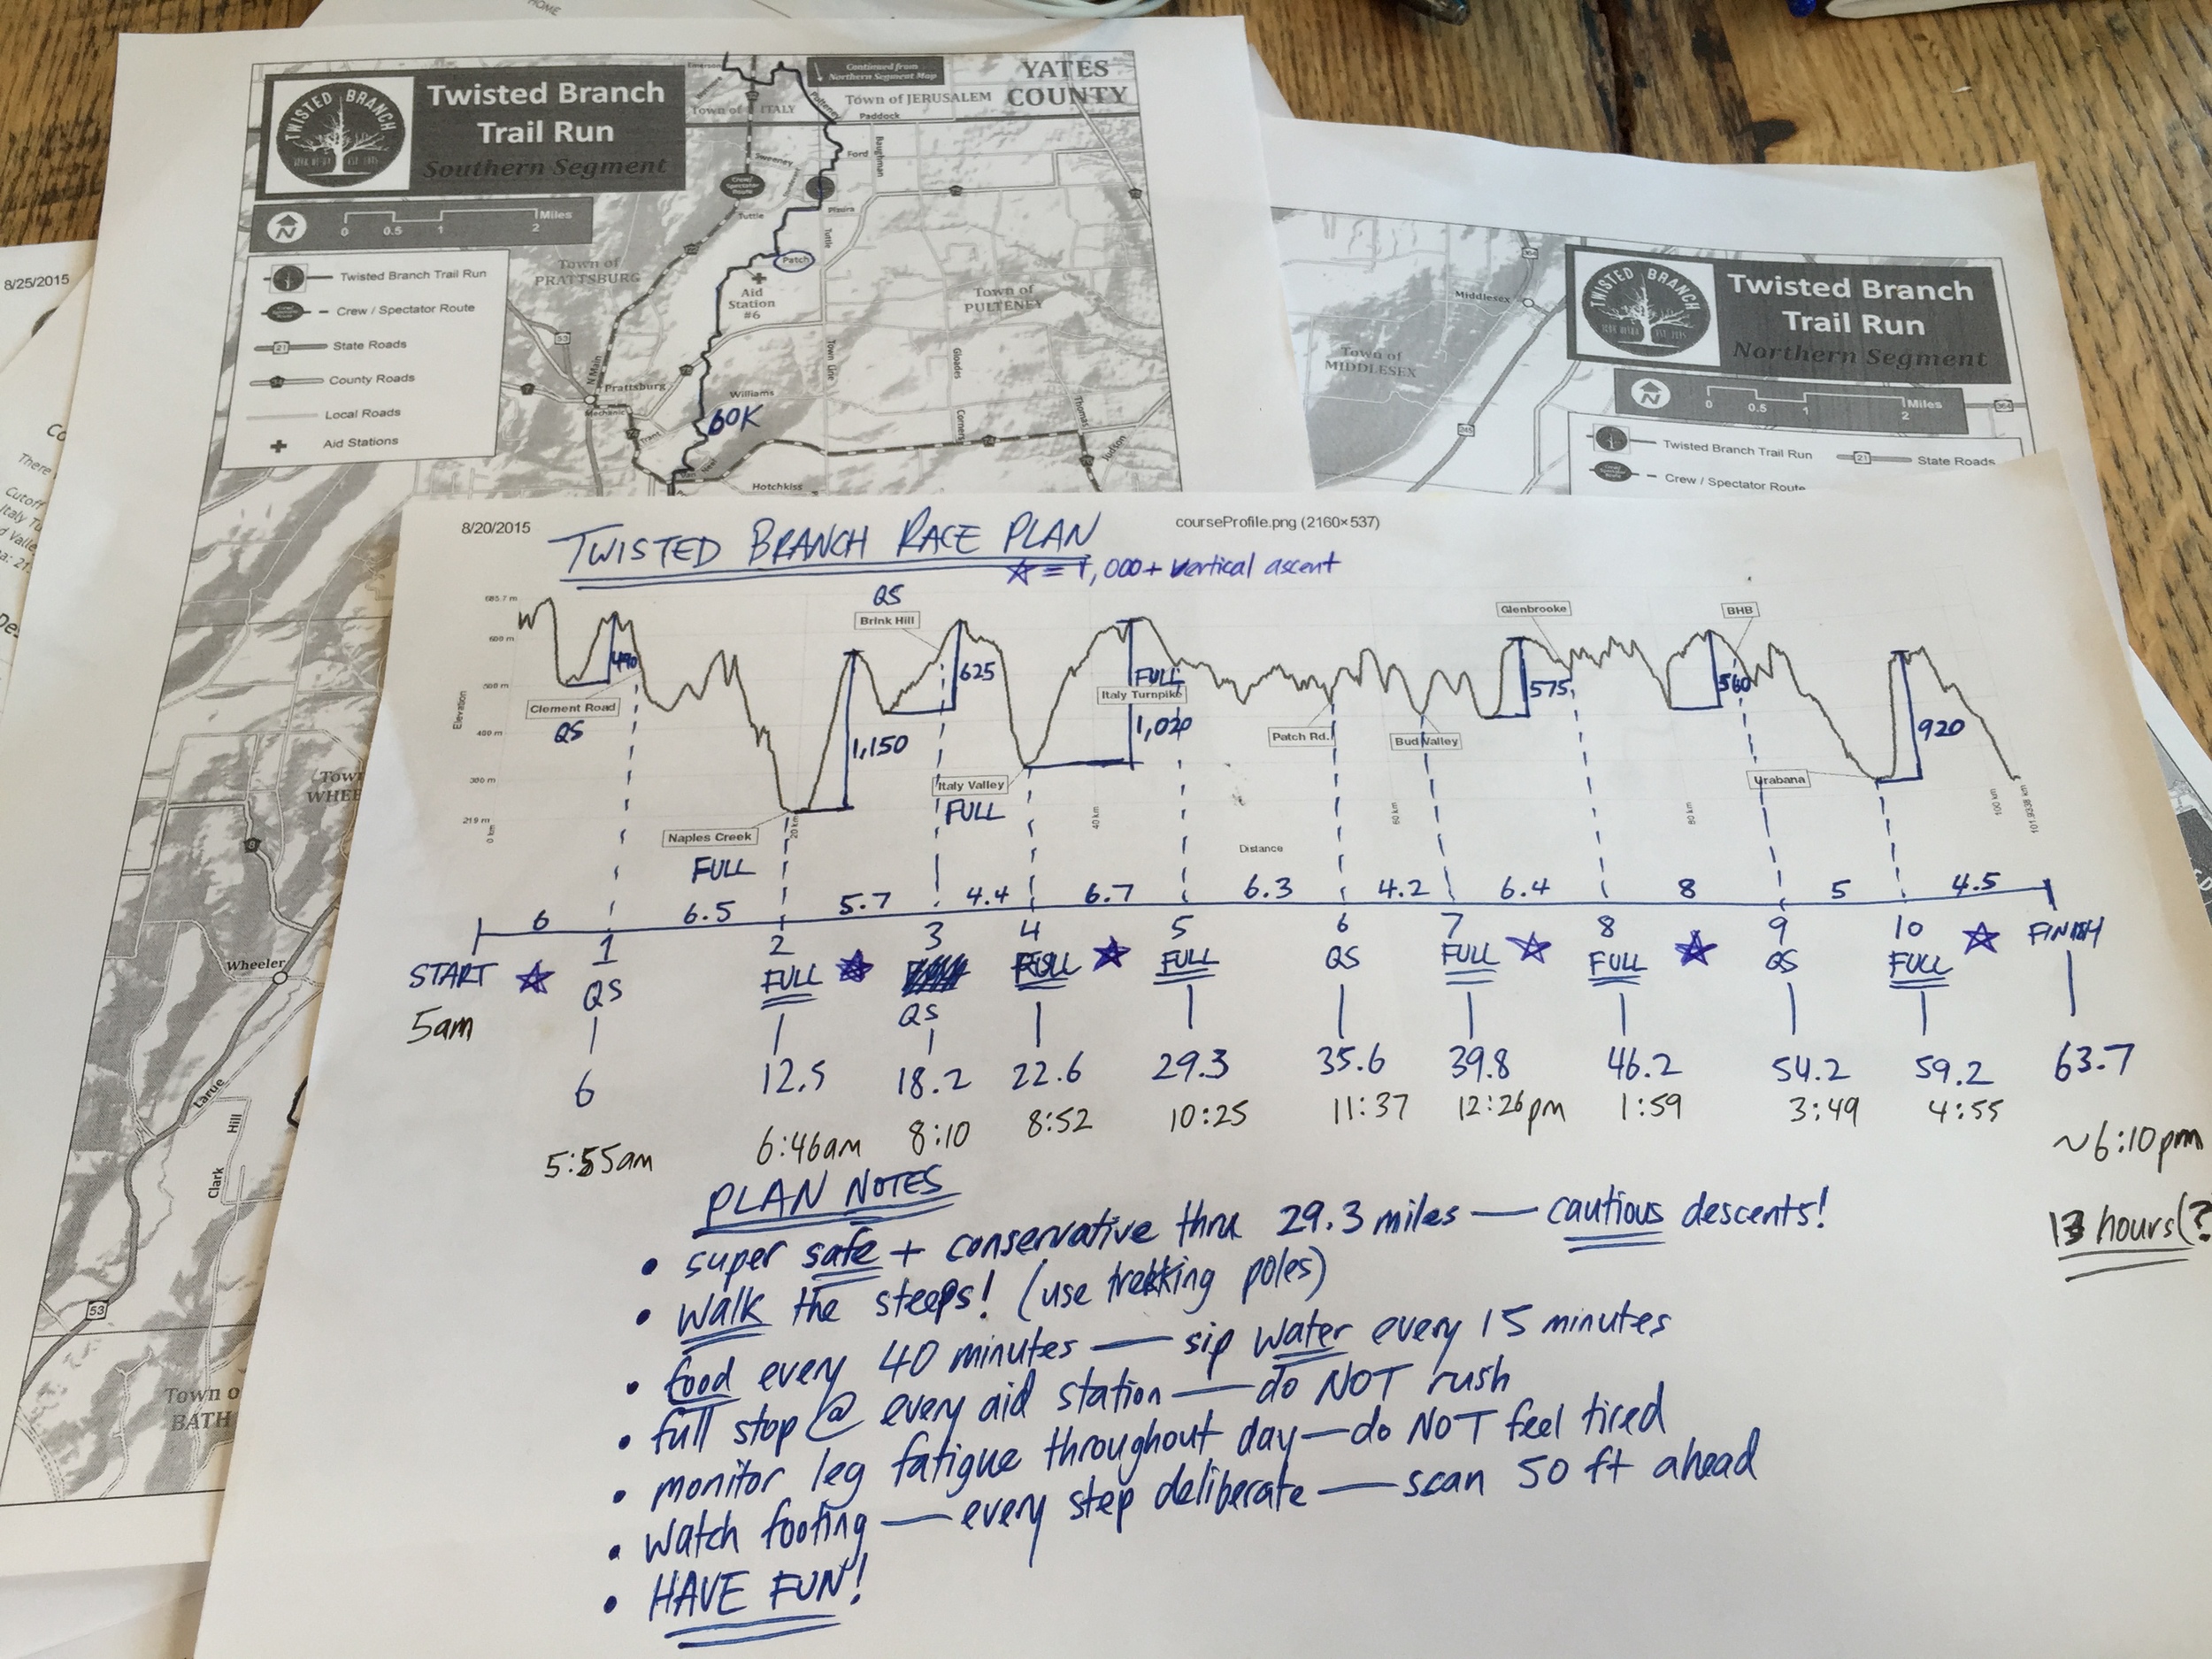 HOME
8/25/2015
There
Cutoff
TWISTED BRANCH
Twisted Branch
Trail Run
Southern Segment
Continued from
Northern Segment Map
YATES
COUNTY
Town of ITALY
Town of JERUSALEM
Paddock
Ford
Baughman
Sweeney
Crew/
Spectator
Route
Tuttle
Tuttle
N
Miles
0 0.5 1 2
Twisted Branch Trail Run
Crew / Spectator Route
21 State Roads
County Roads
Local Roads
Aid Stations
Town of
PRATTSBURG
Patch
Aid
Station
#6
Town of
PULTENEY
53
N Main
Prattsburg
Mechanic
Williams
60K
Town Line
Gloades
Corners
Thomas
Judson
Hotchkiss
364
Middlesex
Town of
MIDDLESEX
245
TWISTED BRANCH
Twisted Branch
Trail Run
Northern Segment
N
Miles
0 0.5 1 2
364
Twisted Branch Trail Run
21 State Roads
Crew / Spectator Route
Wheeler
Larue
Hill
Clark
53
Town o
BATH
8/20/2015
courseProfile.png (2160×537)
TWISTED BRANCH RACE PLAN
☆ = 1,000+ vertical ascent
685.7 m
600 m
500 m
400 m
300 m
219 m
Elevation
QS
Brink Hill
Glenbrooke
BHB
490
625
FULL
575
560
Clement Road
QS
Italy Turnpike
1,150
1,020
Patch Rd.
Bud Valley
920
Italy Valley
FULL
Urabana
Naples Creek
FULL
0 km
20 km
40 km
60 km
80 km
100 km
101.9338 km
Distance
6 6.5 5.7 4.4 6.7 6.3 4.2 6.4 8 5 4.5
1 2 3 4 5 6 7 8 9 10 FINISH
START ☆ QS FULL ☆ QS FULL ☆ FULL QS FULL ☆ FULL ☆ QS FULL ☆
6 12.5 18.2 22.6 29.3 35.6 39.8 46.2 54.2 59.2 63.7
5am 5:55am 6:46am 8:10 8:52 10:25 11:37 12:26pm 1:59 3:49 4:55 ~6:10pm
13 hours(?
PLAN NOTES
• super safe + conservative thru 29.3 miles — cautious descents!
• walk the steeps! (use trekking poles)
• food every 40 minutes — sip water every 15 minutes
• full stop @ every aid station — do NOT rush
• monitor leg fatigue throughout day — do NOT feel tired
• watch footing — every step deliberate — scan 50 ft ahead
• HAVE FUN!